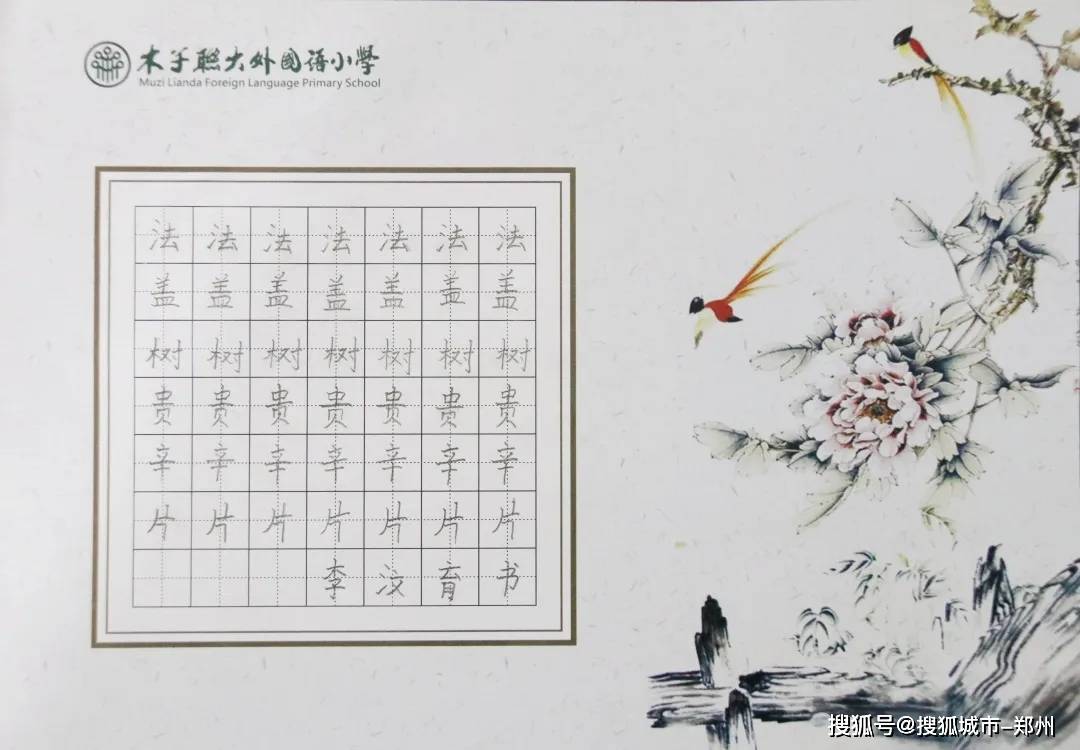 木子聯大外國语小學
Muzi Lianda Foreign Language Primary School
法法法法法法法
盖盖盖盖盖盖盖
树树树树树树树
贵贵贵贵贵贵贵
辛辛辛辛辛辛辛
片片片片片片片
李汶育书
搜狐号@搜狐城市-郑州